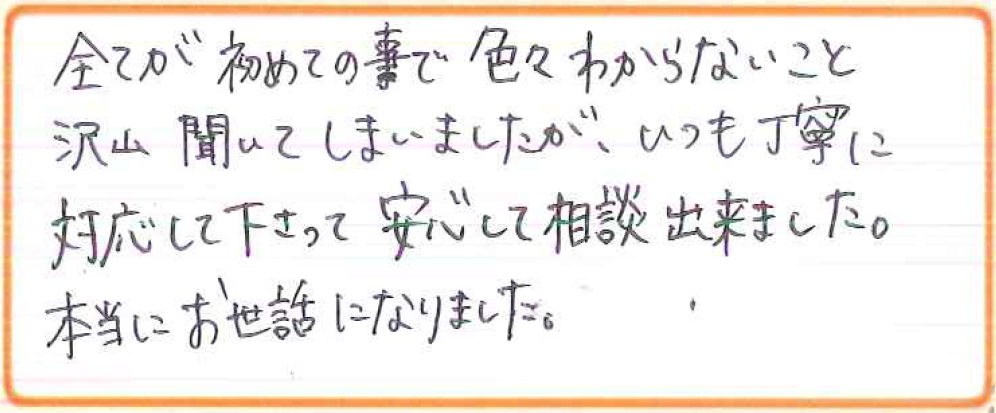 全てが初めての事で色々わからないこと
沢山聞いてしまいましたが、いつも丁寧に
対応して下さって安心して相談出来ました。
本当にお世話になりました。